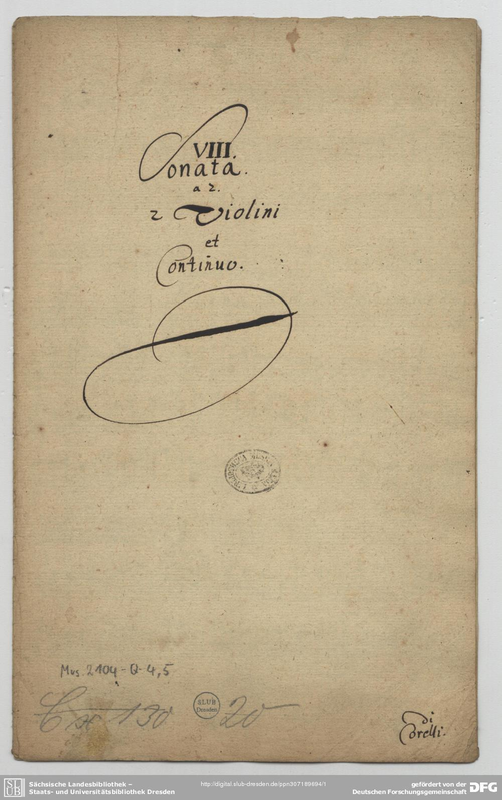 VIII.
Sonata.
a 2.
2 Violini
et
Continuo.
Mus. 2104-Q-4,5
SLUB
Dresden
130
20
di
Corelli.
Sächsische Landesbibliothek –
Staats- und Universitätsbibliothek Dresden
http://digital.slub-dresden.de/ppn307189894/1
gefördert von der
Deutschen Forschungsgemeinschaft
DFG